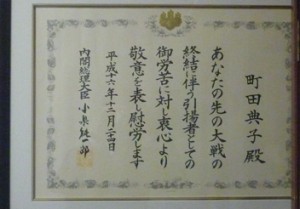 町田典子殿
あなたの先の大戦の
終結に伴う引揚者としての
御労苦に対し衷心より
敬意を表し慰労します
平成十六年十二月二十四日
内閣総理大臣 小泉純一郎